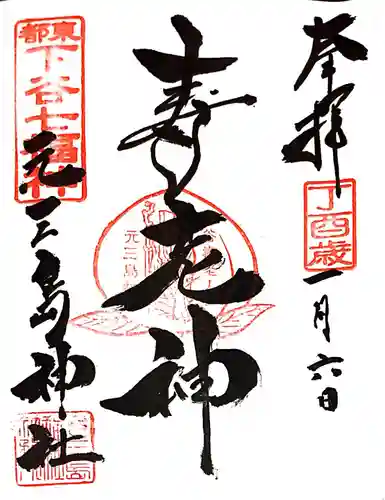 奉拝
丁酉歳
一月六日
寿老神
東都
下谷七福神
元三島神社
元三島